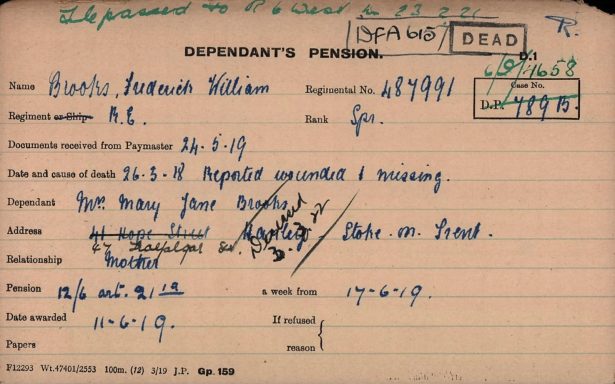 passed to R 6 West 23 2 21
R.
DFA 6157
DEAD
DEPENDANT'S PENSION.
D.1
6/D/4658
Name Brooks, Frederick William Regimental No. 487991
Case No.
D.P. 789 B.
Regiment or Ship R.E. Rank Spr.
Documents received from Paymaster 24-5-19
Date and cause of death 26-3-18 Reported wounded & missing.
Dependant Mrs. Mary Jane Brooks,
Deceased
Address 41 Hope Street Hanley Stoke on Trent.
47 Trafalgar St.
Relationship Mother
Pension 12/6 art. 21 1a a week from 17-6-19.
Date awarded 11-6-19. If refused
Papers reason
F12293 Wt.47401/2553 100m. (12) 3/19 J.P. Gp. 159